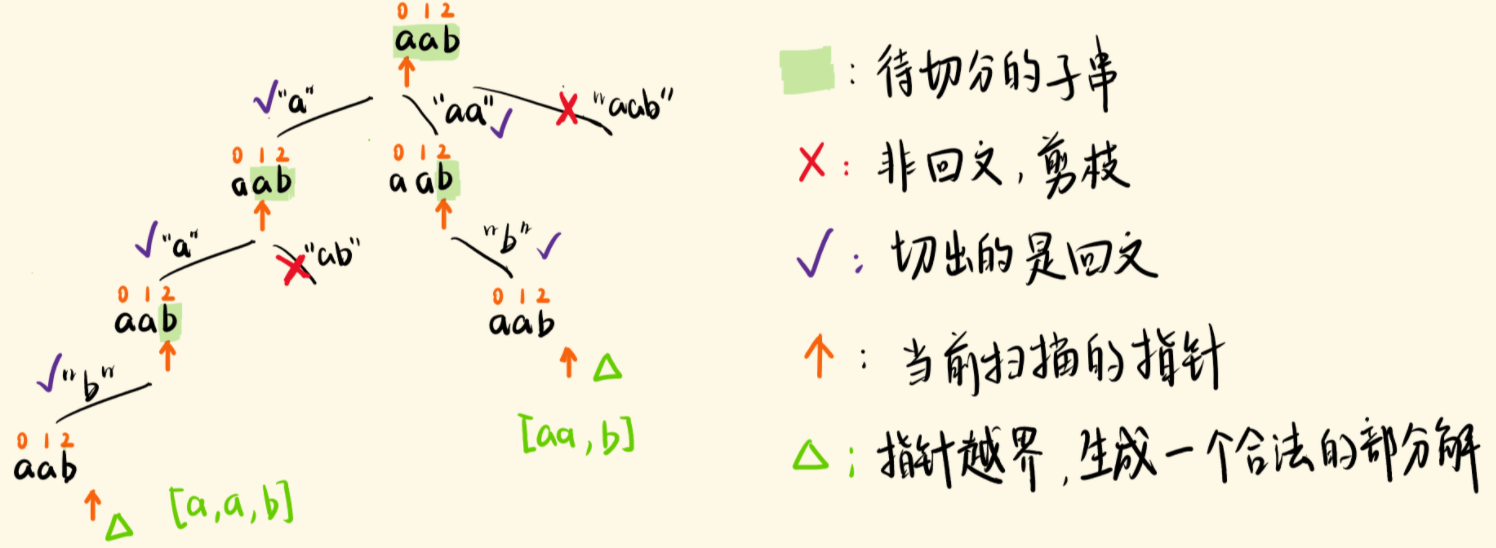 0 1 2
aab
"a" "aa" "aab"
0 1 2 0 1 2
aab aab
"a" "ab" "b"
0 1 2 0 1 2
aab aab
"b"
[aa,b]
0 1 2
aab
[a,a,b]
: 待切分的子串
: 非回文,剪枝
: 切出的是回文
: 当前扫描的指针
: 指针越界,生成一个合法的部分解